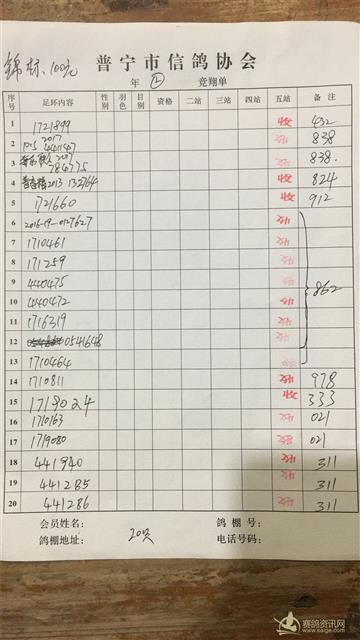 锦标. 100元 普宁市信鸽协会
年 ② 竞翔单
序号 足环内容 性别 羽色 日别 资格 二站 三站 四站 五站 备注
1 1721899 收 432
2 2017 4401407 838
3 2017 784775 838.
4 2013 132764 收 824
5 1721660 收 912
6 2016-19-0127627
7 1710461
8 171259
9 440475
10 440472 862
11 1716319
12 0541648
13 1710464
14 1710811 978
15 1719024 收 333
16 1710163 021
17 1719080 021
18 441940 311
19 441285 311
20 441286 311
会员姓名: 鸽棚号:
鸽棚地址: 20只 电话号码:
赛鸽资讯网
www.saige.com